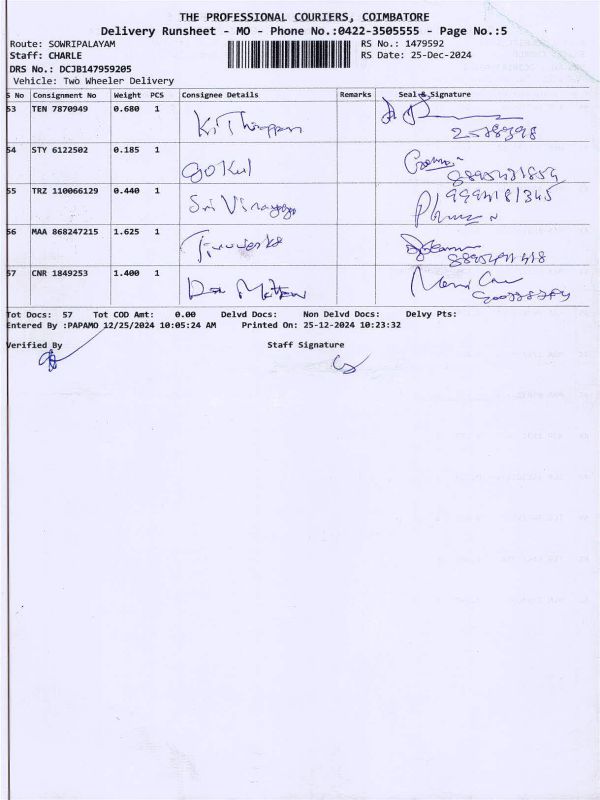 THE PROFESSIONAL COURIERS, COIMBATORE
Delivery Runsheet - MO - Phone No.:0422-3505555 - Page No.:5
Route: SOWRIPALAYAM RS No.: 1479592
Staff: CHARLE RS Date: 25-Dec-2024
DRS No.: DCJB147959205
Vehicle: Two Wheeler Delivery
S No Consignment No Weight PCS Consignee Details Remarks Seal & Signature
53 TEN 7870949 0.680 1
54 STY 6122502 0.185 1 GoKul
55 TRZ 110066129 0.440 1 Sri Vinayaga
56 MAA 868247215 1.625 1
57 CNR 1849253 1.400 1
Tot Docs: 57 Tot COD Amt: 0.00 Delvd Docs: Non Delvd Docs: Delvy Pts:
Entered By :PAPAMO 12/25/2024 10:05:24 AM Printed On: 25-12-2024 10:23:32
Verified By Staff Signature